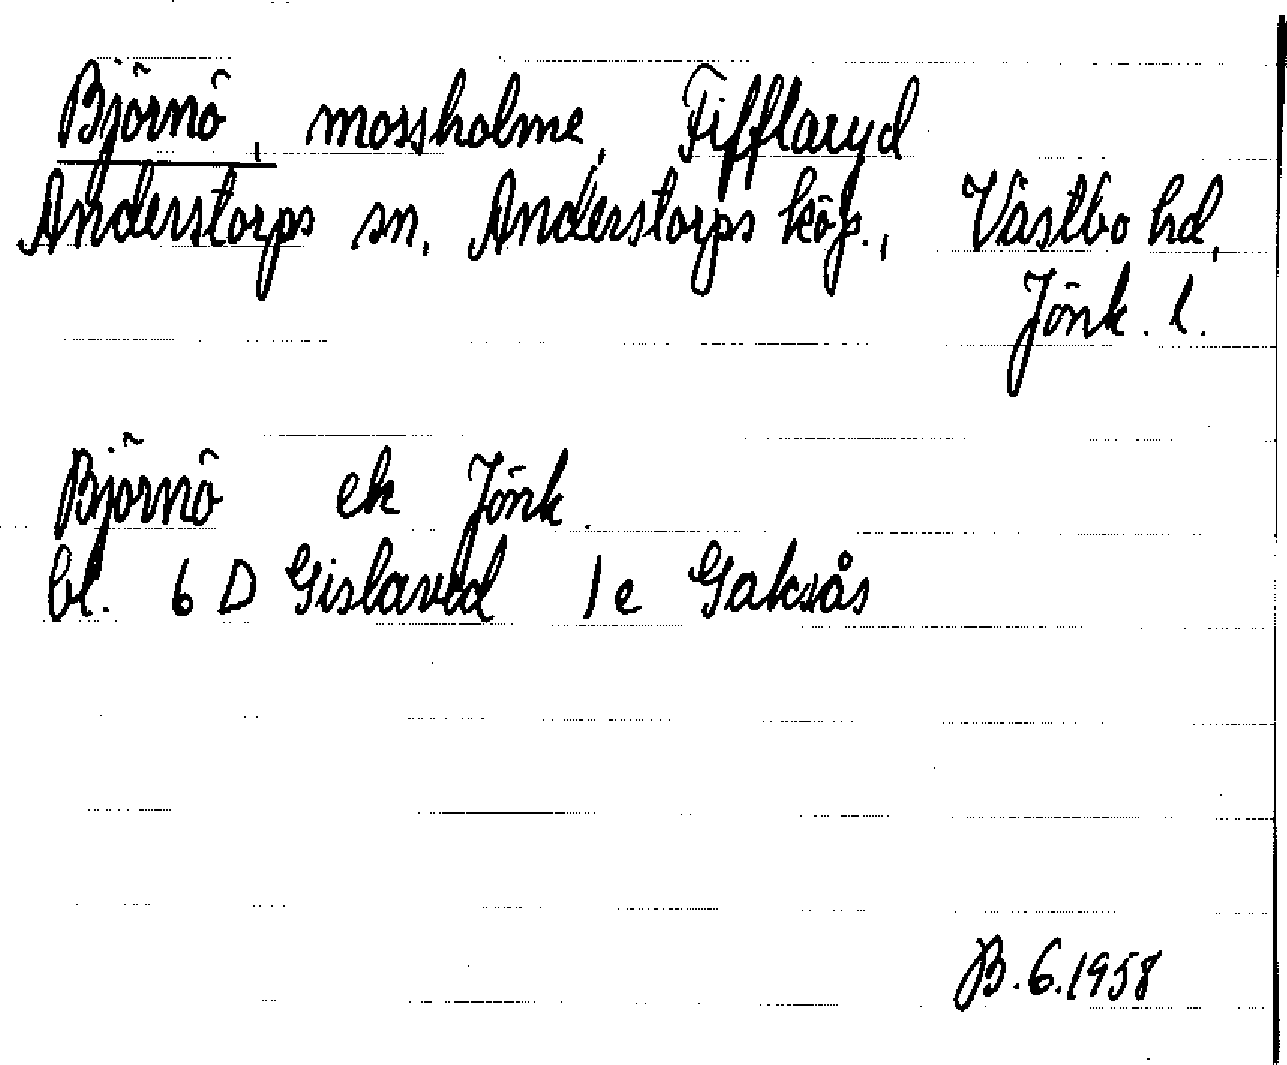 Björnö, mossholme, Fifflaryd
Anderstorps sn, Anderstorps köp., Västbo hd,
Jönk. l.
Björnö ek Jönk.
bl. 6 D Gislaved 1 e Gaksås
B.6.1958